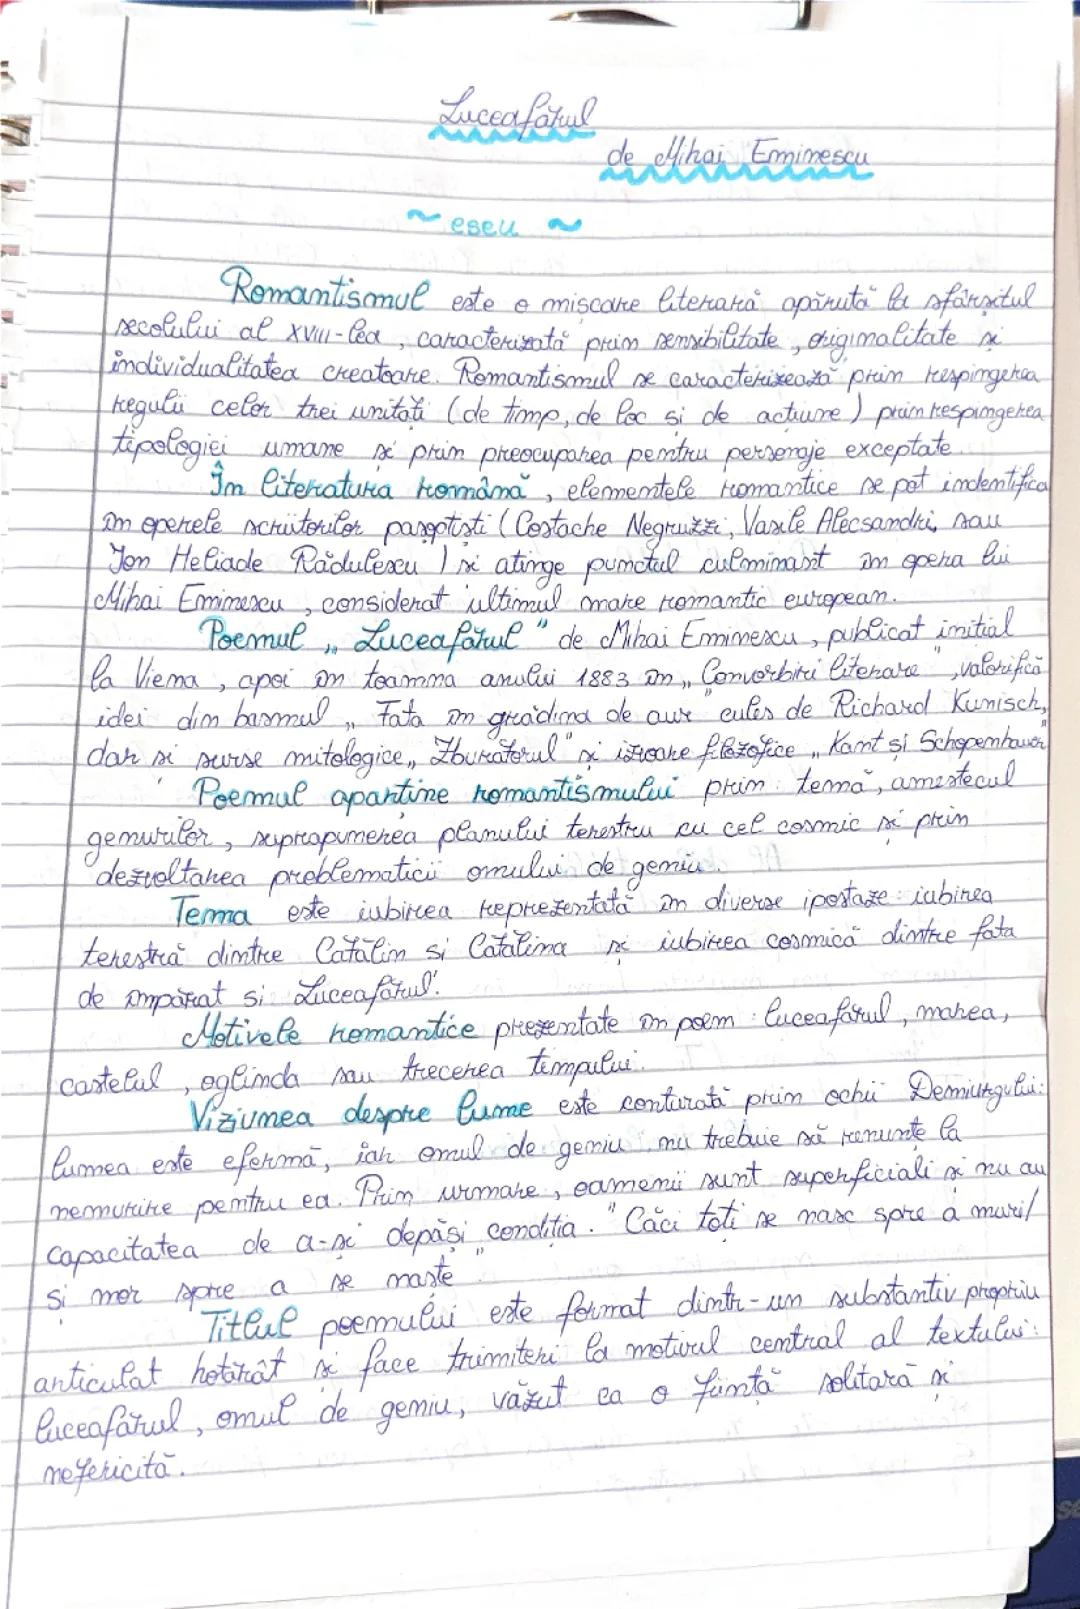 Luceafărul
de Mihai Eminescu
~ eseu ~
Romantismul este o mișcare literară apărută la sfârșitul
secolului al XVIII-lea, caracterizată prin sensibilitate, originalitate și
individualitatea creatoare. Romantismul se caracterizează prin respingerea
regulii celor trei unități (de timp, de loc și de acțiune) prin respingerea
tipologiei umane și prin preocuparea pentru personaje exceptate.
În literatura română, elementele romantice se pot indentifica
în operele scriitorilor pașoptiști (Costache Negruzzi, Vasile Alecsandri, sau
Ion Heliade Rădulescu) și atinge punctul culminant în opera lui
Mihai Eminescu, considerat ultimul mare romantic european.
Poemul „Luceafărul" de Mihai Eminescu, publicat inițial
la Viena, apoi în toamna anului 1883 în „Convorbiri literare", valorifică
idei din basmul „Fata în grădina de aur" cules de Richard Kunisch,
dar și surse mitologice „Zburătorul" și izvoare filozofice „Kant și Schopenhauer"
Poemul aparține romantismului prin: temă, amestecul
genurilor, suprapunerea planului terestru cu cel cosmic și prin
dezvoltarea problematicii omului de geniu.
Tema este iubirea reprezentată în diverse ipostaze: iubirea
terestră dintre Cătălin și Cătălina și iubirea cosmică dintre fata
de împărat și Luceafărul.
Motivele romantice prezentate în poem: luceafărul, marea,
castelul, oglinda sau trecerea timpului.
Viziunea despre lume este conturată prin ochii Demiurgului:
lumea este efermă, iar omul de geniu nu trebuie să renunțe la
nemurire pentru ea. Prin urmare, oamenii sunt superficiali și nu au
capacitatea de a-și depăși condiția. "Căci toți se nasc spre a muri/
și mor spre a se naște"
Titlul poemului este format dintr-un substantiv propriu
articulat hotărât și face trimiteri la motivul central al textului:
luceafărul, omul de geniu, văzut ca o ființă solitară și
nefericită.